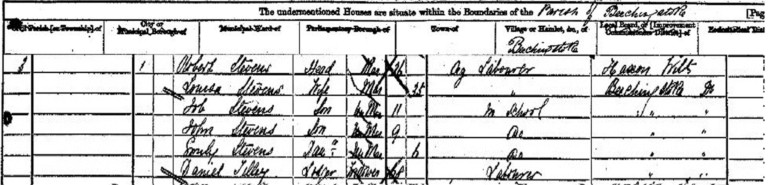 The undermentioned Houses are situate within the Boundaries of the Parish of Beechingstoke [Pag
Civil Parish [or Township] of City or Municipal Borough of Municipal Ward of Parliamentary Borough of Town of Village or Hamlet, &c., of Local Board, or [Improvement Commissioners District] of Ecclesiastical Dist
Beechingstoke
3 1 Robert Stevens Head Mar 36 Ag Labourer Wilts
Louisa Stevens Wife Mar 35 " Beechingstoke Do
Job Stevens Son Un Mar 11 In School " "
John Stevens Son Un Mar 9 Do " "
Emily Stevens Daur Un Mar 6 Do " "
Daniel Tilley Lodger 68 Labourer " "